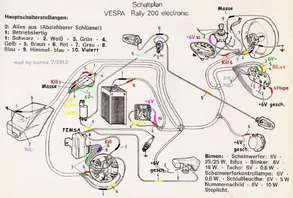 Schaltplan
VESPA Rally 200 electronic
Hauptschalterstellungen:
0: Alles aus (Abziehbarer Schlüssel)
1: Betriebsfertig
1: Schwarz - 2. Weiß - 3. Grün - 4.
Gelb - 5. Braun - 6. Rot - 7. Grau - 8.
Blau - 9. Himmel-blau - 10. Violett
mod by karoo 7/2013
Masse
Kill
Masse
FEMSA
Kill
+6V
+6V gesch.
+6V
gesch.
Kill
+6V
BiLux
Hupe
+6V gesch.
Birnen - Scheinwerfer: 6V -
25/25 W. bilux - Blinker: 6V -
18 W. - Tacho: 6V - 0.6 W -
Scheinwerferkontrollampe: 6V -
0,6 W. - Schlußleuchte: 6V - 5 W
Nummernschild - 6V - 10 W.
Stoplicht.